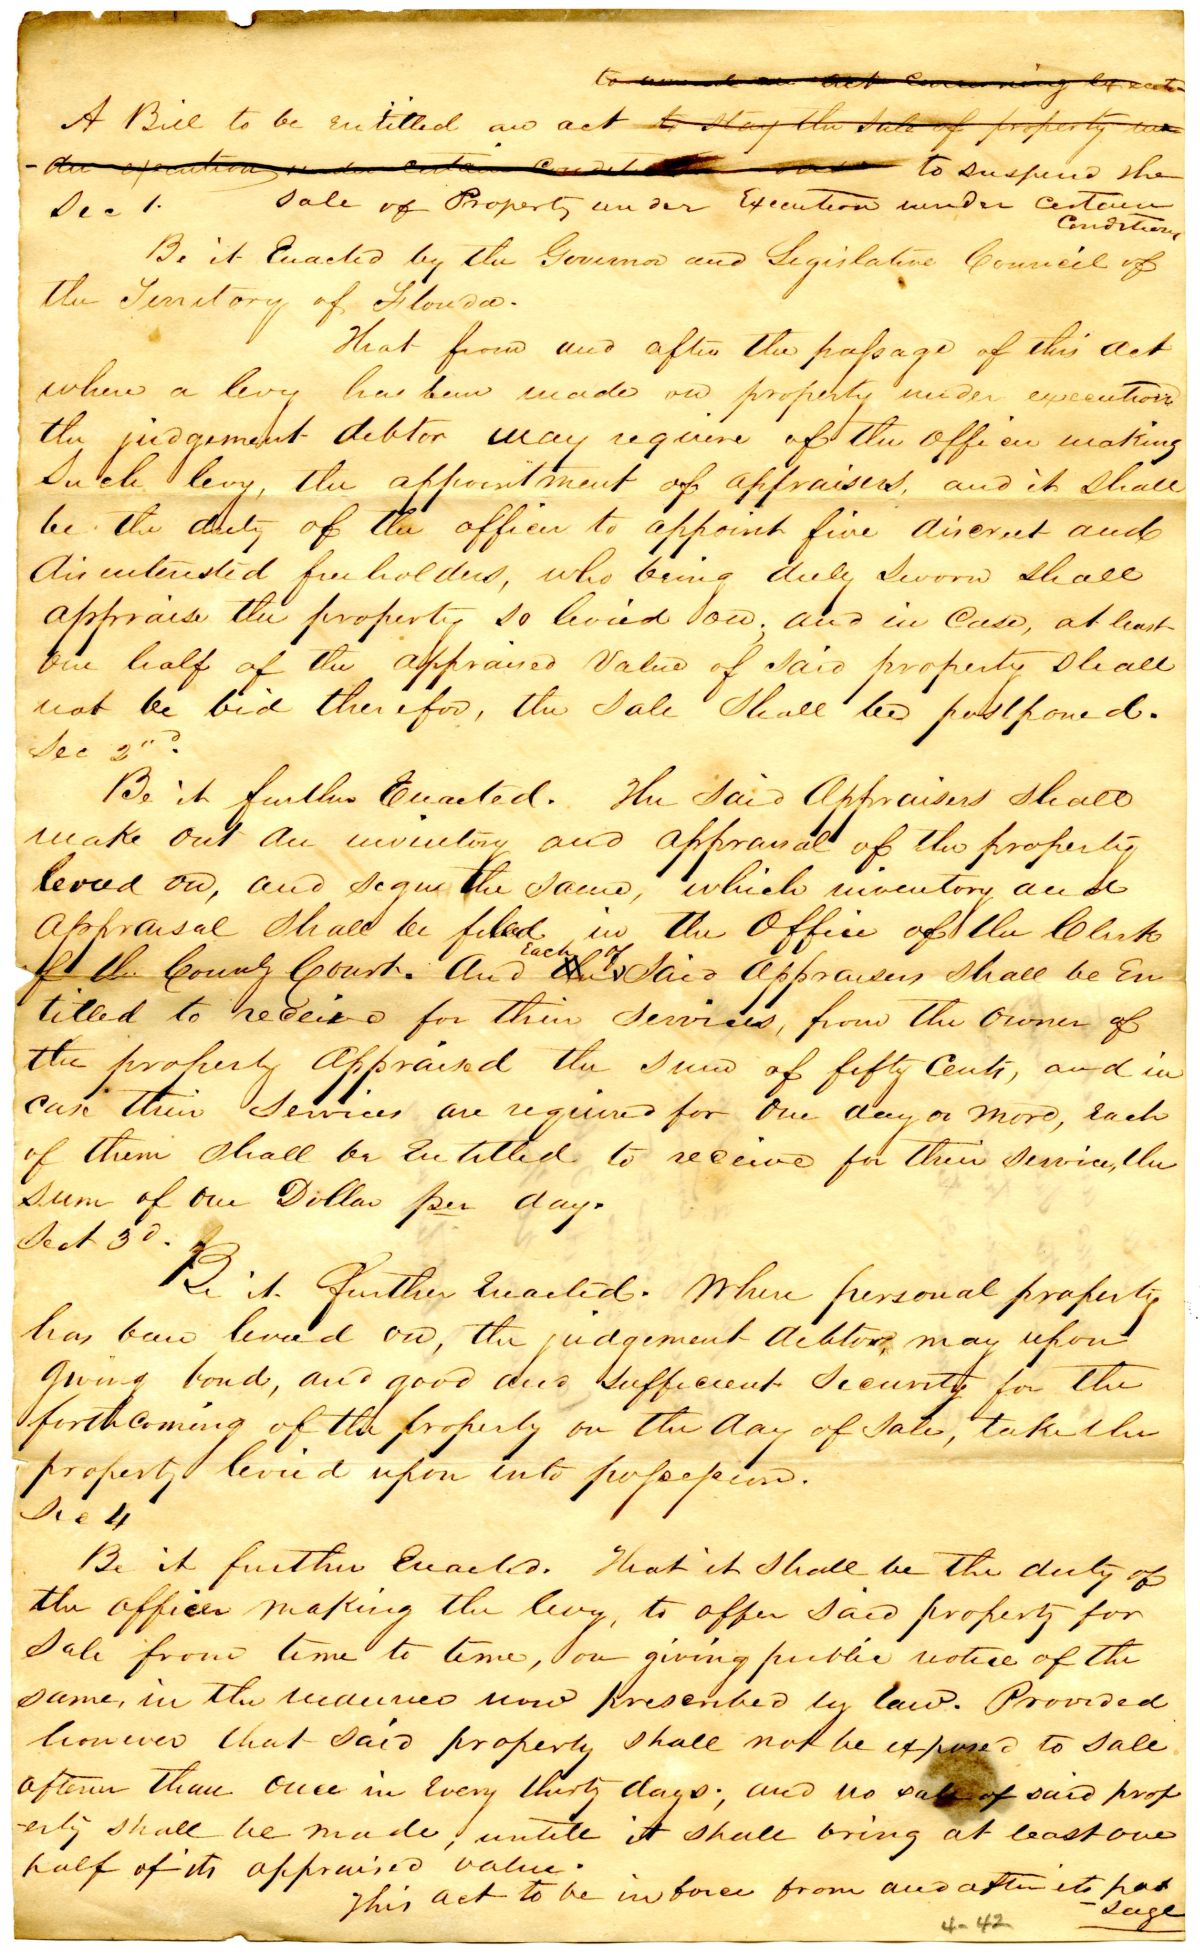 to amend an act concerning execut-
A Bill to be entitled an act to stay the sale of property un-
-der execution under certain conditions to suspend the
Sec 1. Sale of Property under Execution under certain
Conditions
Be it Enacted by the Governor and Legislative Council of
the Territory of Florida.
That from and after the passage of this act
where a levy has been made on property under execution
the judgement debtor may require of the officer making
Such levy, the appointment of appraisers, and it shall
be the duty of the officer to appoint five discreet and
disinterested freeholders, who being duly sworn shall
appraise the property so levied on, and in case, at least
one half of the appraised value of said property shall
not be bid therefor, the sale shall be postponed.
Sec 2nd.
Be it further Enacted. The said Appraisers shall
make out an inventory and appraisal of the property
levied on, and sign the same, which inventory and
appraisal shall be filed in the Office of the Clerk
of the County Court. And Each of the said Appraisers shall be En
titled to receive for their services, from the owner of
the property Appraised the sum of fifty cents, and in
case their services are required for one day or more, each
of them shall be Entitled to receive for their service, the
sum of one Dollar per day.
Sect 3d.
Be it further Enacted. Where personal property
has been levied on, the judgement debtor, may upon
giving bond, and good and sufficient security for the
forthcoming of the property on the day of sale, take the
property levied upon into possession.
Sec 4
Be it further Enacted. That it shall be the duty of
the officer making the levy, to offer said property for
sale from time to time, on giving public notice of the
same, in the manner now prescribed by law. Provided
however that said property shall not be exposed to sale
oftener than once in every thirty days; and no sale of said prop
-erty shall be made, untill it shall bring at least one
half of its appraised value.
This act to be in force from and after its pas
-sage
4-42